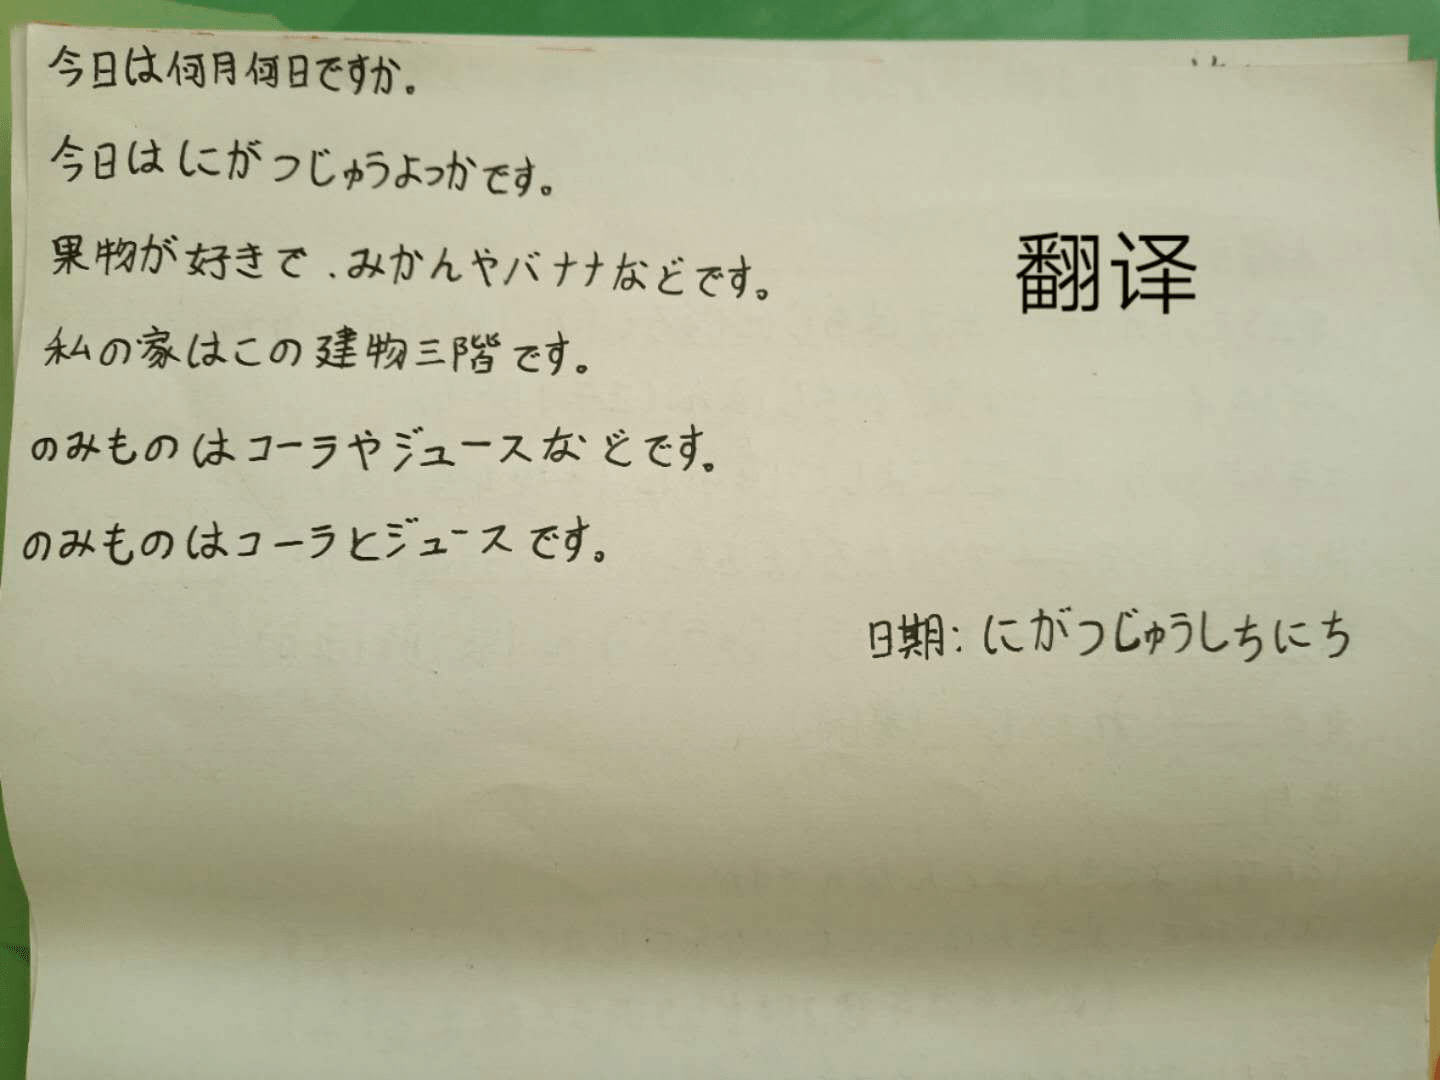 今日は何月何日ですか。
今日はにがつじゅうよっかです。
果物が好きで、みかんやバナナなどです。
翻译
私の家はこの建物三階です。
のみものはコーラやジュースなどです。
のみものはコーラとジュースです。
日期:にがつじゅうしちにち